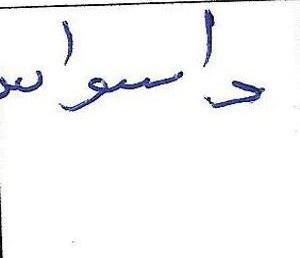 داسواس